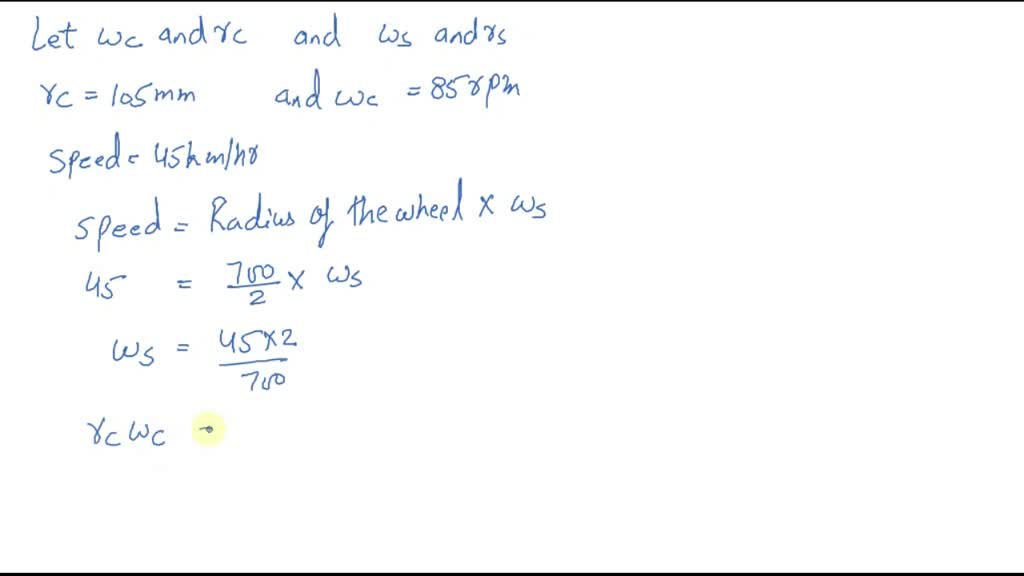 Let ωc and rc and ωs and rs
rc = 105mm and ωc = 85rpm
Speed = 45km/hr
Speed = Radius of the wheel × ωs
45 = 700/2 × ωs
ωs = 45×2/700
rc ωc =